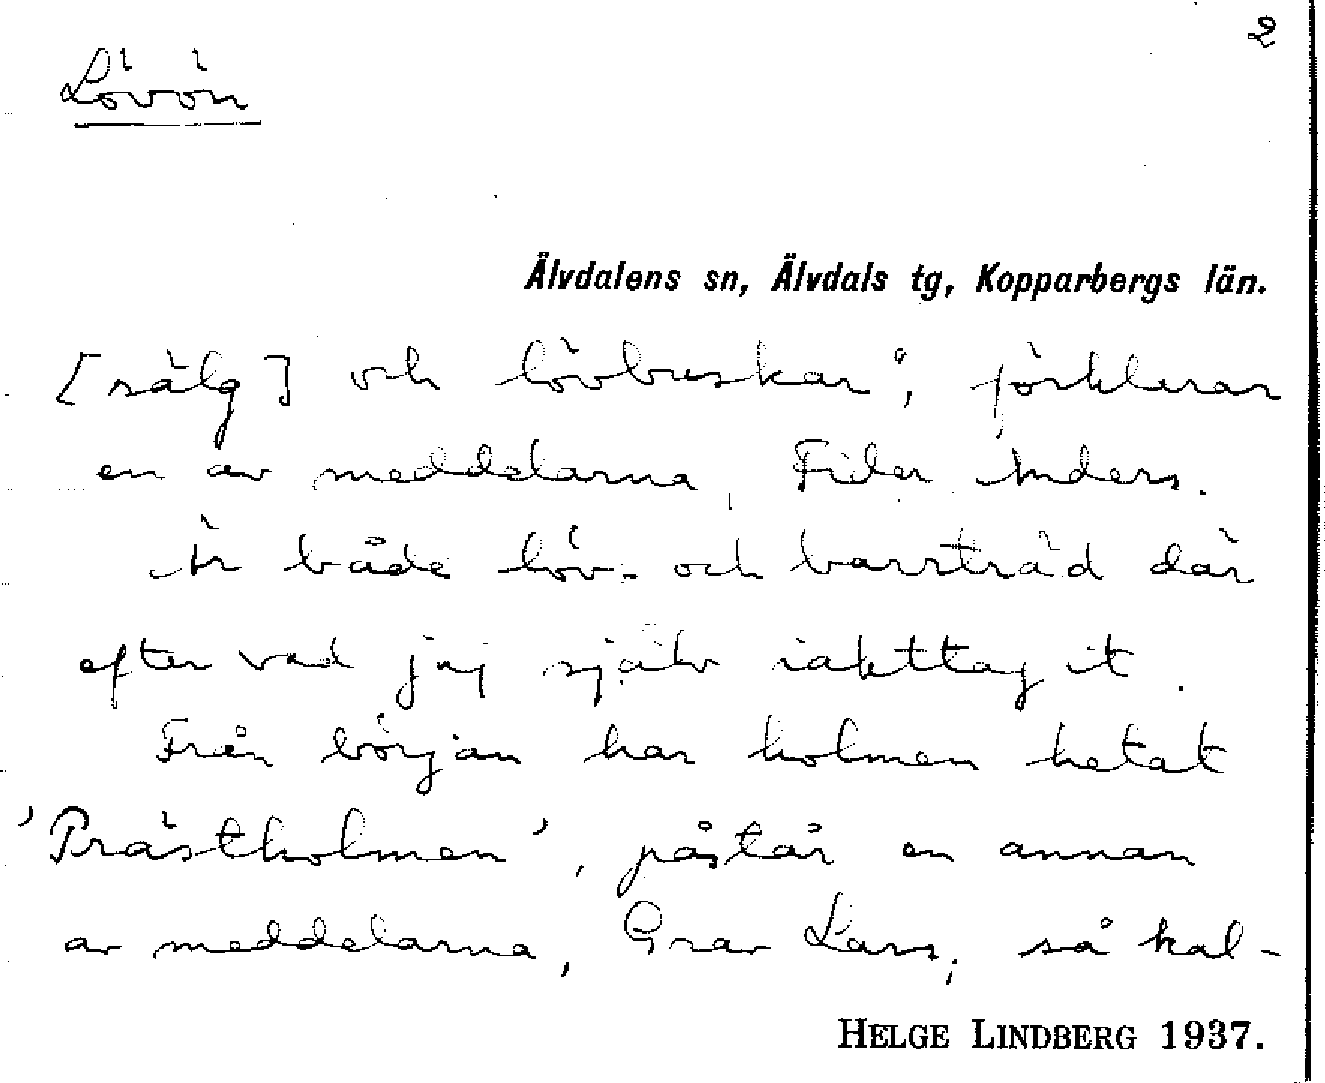 2
Lövön
Älvdalens sn, Älvdals tg, Kopparbergs län.
[sälg] och lövbuskar", förklarar
en av meddelarna, Fider Anders.
Är både löv- och barrträd där
efter vad jag själv iakttagit.
Från början har holmen hetat
'Prästholmen', påstår en annan
av meddelarna, Grav Lars, så kal-
HELGE LINDBERG 1937.